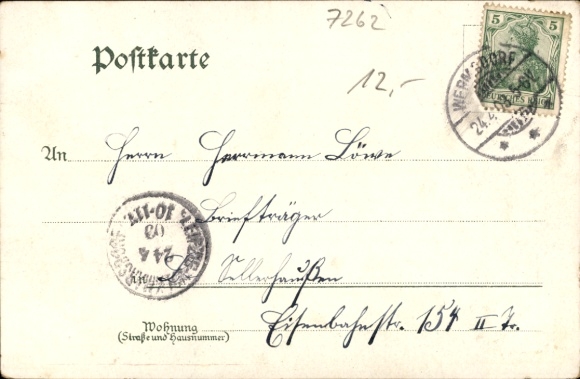 7262
Postkarte
12,-
5
WERMSDORF
24.4.03.5-6N.
DEUTSCHES REICH
An Herrn Herrmann Löwe
Briefträger
Sellerhaußen
Wohnung
(Straße und Hausnummer)
Eisenbahnstr. 154 II Tr.
LEIPZIG
10-11V.
24 4
03